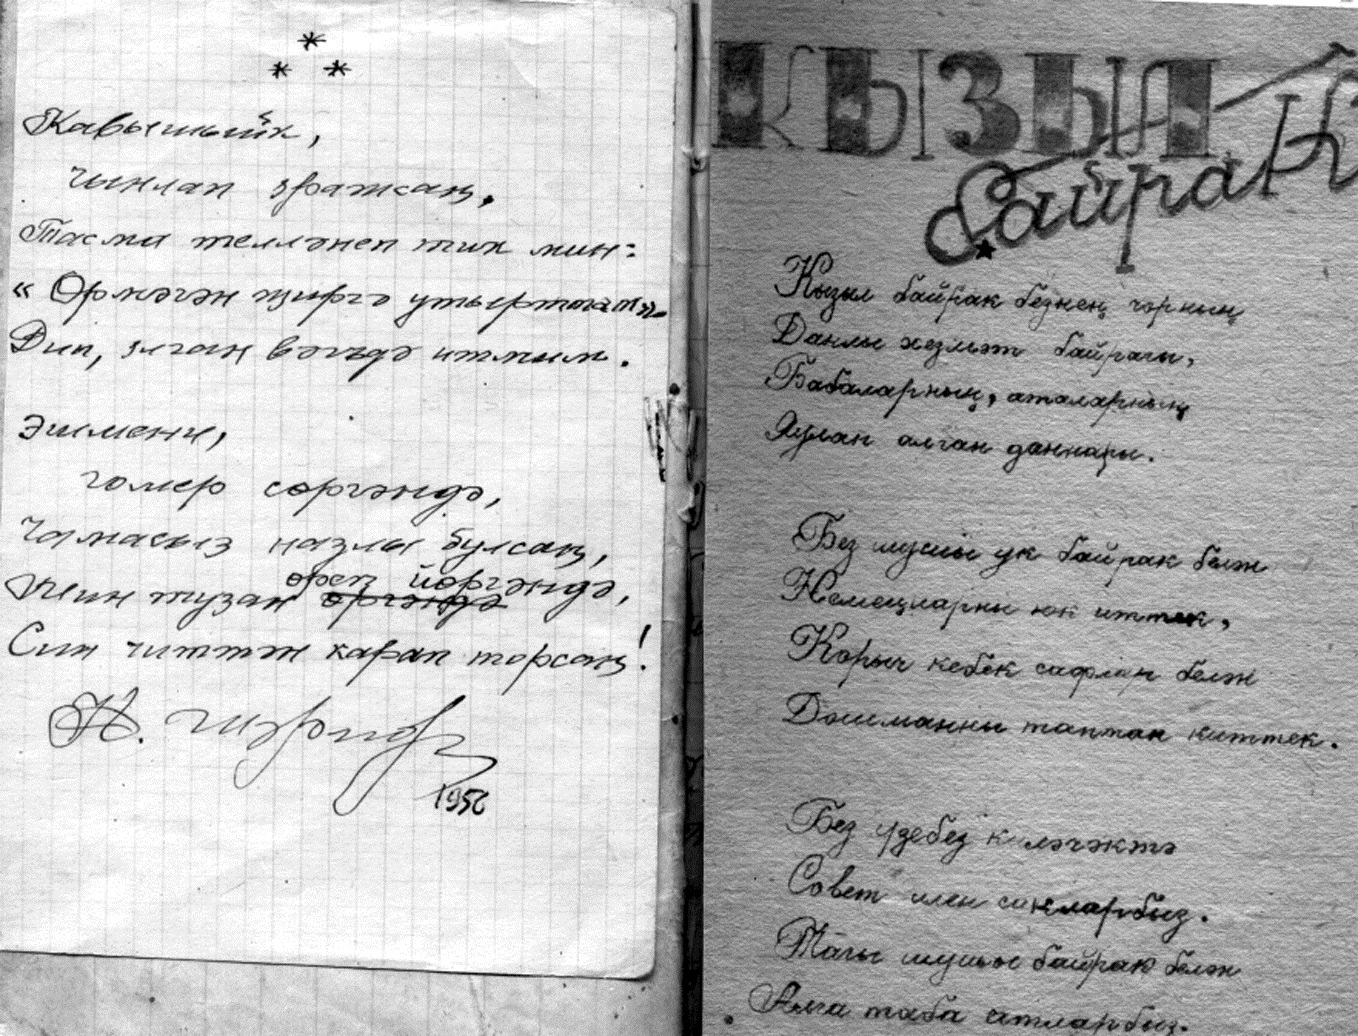 * * *
Кавышыйк,
чынлап яратсаң,
Тасма теллэнеп тик мин:
« Өрмәгән җиргә утыртмам»
Дип, ялган вәгъдә итмим.
Эшмени,
гомер сөргәндә,
Чамасыз назлы булсаң,
Мин тузан өреп йөргәндә,
өргәндә
Син читтән карап торсаң!
Н.
1956
КЫЗЫЛ
байрак
Кызыл байрак безнең чорның
Данлы хезмәт байрагы,
Бабаларның, аталарның
Яулап алган даннары.
Без шушы ук байрак белән
Немецларны юк иттек,
Корыч кебек сафлар белән
Дошманны таптап киттек.
Без үзебез киләчәктә
Совет илен сакларбыз.
Тагы шушы байрак белән
Алга таба атларбыз.